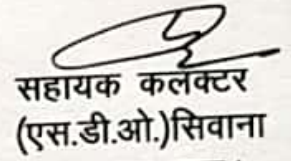 सहायक कलक्टर
(एस.डी.ओ.)सिवाना